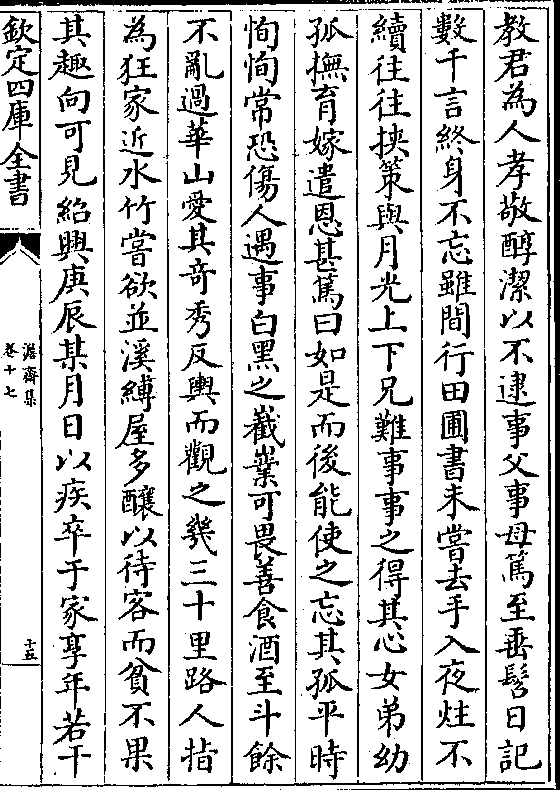 教君為人孝敬醇潔以不逮事父事母篤至垂髫日記
數千言終身不忘雖間行田圃書未嘗去手入夜炷不
續往往挾策與月光上下兄難事事之得其心女弟幼
孤撫育嫁遣恩甚篤曰如是而後能使之忘其孤平時
恂恂常恐傷人遇事白黑之嶻嶪可畏善食酒至斗餘
不亂過華山愛其奇秀反輿而觀之幾三十里路人指
為狂家近水竹嘗欲並溪縛屋多釀以待客而貧不果
其趣向可見紹興庚辰某月日以疾卒于家享年若干
欽定四庫全書
澹齋集
卷十七
十五